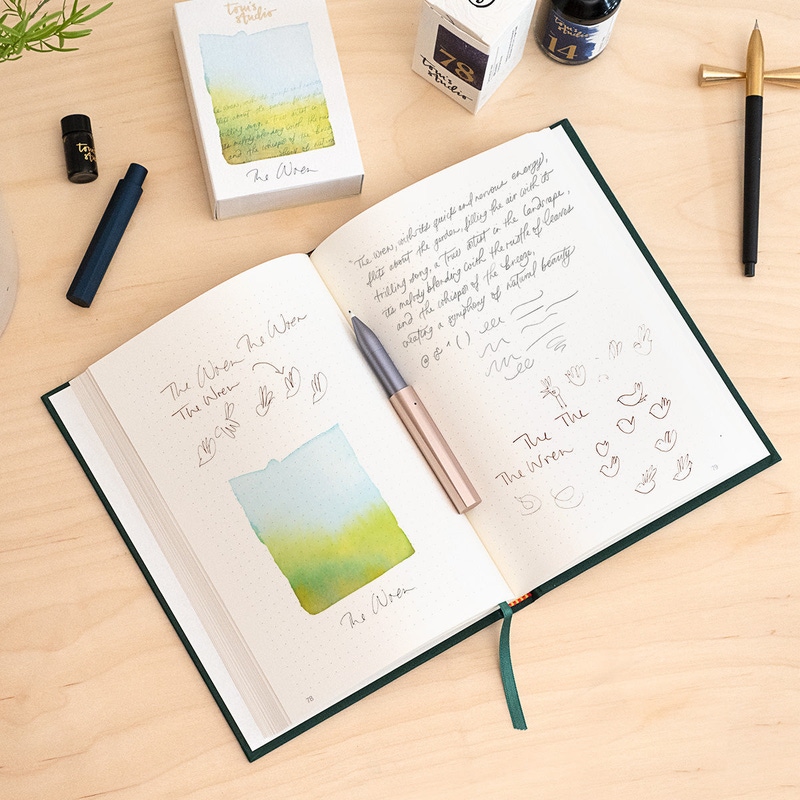 tom's
studio
The Wren
78
tom's
studio
14
tom's
studio
The Wren The Wren
The Wren
The Wren
78
"The wren, with its quick and nervous energy,
flits about the garden, filling the air with its
trilling song, a true artist in the landscape,
its melody blending with the rustle of leaves
and the whisper of the breeze,
creating a symphony of natural beauty
@ & ^ ( )
The The
The Wren
79